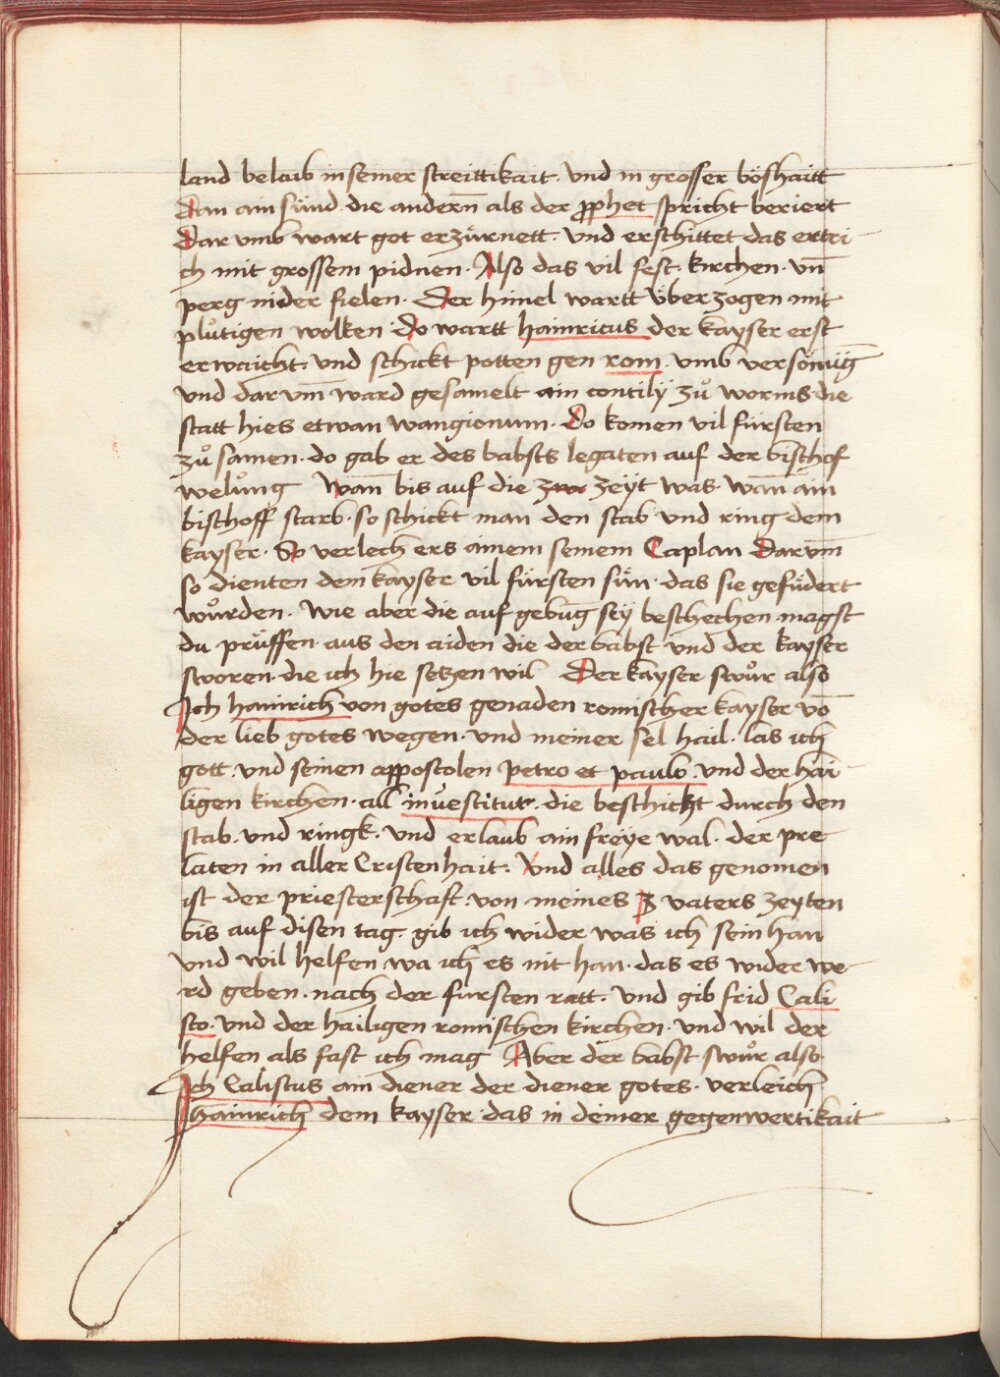 land belaib in seiner streittikait · Vnd in grosser böshaitt
Dan ain sünd · die andern̄ als der ꝓphet spricht beriert
Dar vmb wart got erzürnett · Vnd erschittet das ertri
ch mit grossem pidnen · Also das vil fest · kirchen · vn̄
perg nider fielen · Der himel wartt vͤber zogen mit
plůtigen wolken · Do wartt hainricus der kayser erst
erwaicht · vnd schickt potten gen rom · vmb versönūg
vnd darvm̄ ward gesamelt ain contilÿ zů worms die
statt hies etwan wangionum · Do komen vil fürsten
zů samen · do gab er des babsts legaten auf der bischof
welůng Wan̄ bis auf die zeÿt was · wan̄ ain
bischoff starb · so schickt man den stab vnd ring dem
kayser · So verlech ers ainem seinem Caplan Darvm̄
so dienten dem kayser vil fürsten sün · das sie gefüdert
wůrden · Wie aber die auf gebūg seÿ beschechen magst
du prüffen · aus den aiden die der babst vnd der kayser
sworen · die ich hie setzen wil Der kayser swůr also
Ich hainrich von gotes genaden romischer kayser vō
der lieb gotes wegen · vnd meiner sel hail · las ich
gott · vnd seinen appostolen petro et paulo · vnd der hai
ligen kirchen · all investitur · die beschicht durch den
stab · vnd ringk · vnd erlaub ain freÿe wal · der pre
laten in aller Cristenhait · Vnd alles das genomen
ist der priesterschaft · von meines vaters zeyten
bis auf disen tag · gib ich wider was ich sein han
vnd wil helfen wa ich es nit han · das es wider we
rd geben · nach der fursten ratt · Vnd gib frid Cali
sto · vnd der hailigen romischen kirchen · vnd wil der
helfen als fast ich mag Aber der babst swůr also
Ich Calistus ain diener der diener gotes · verleich
hainrich dem kayser · das in deiner gegenwertikait